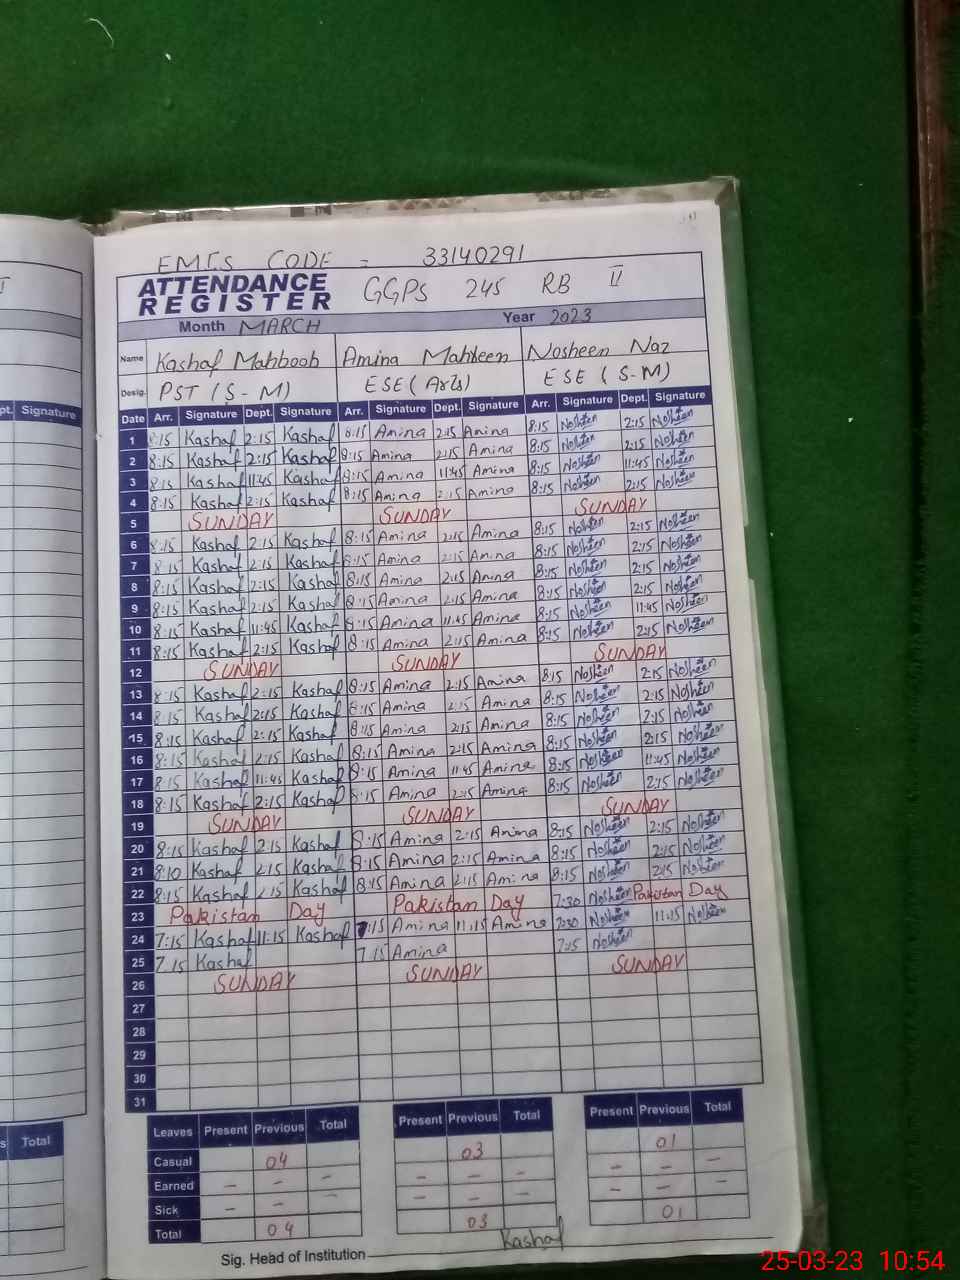 EMIS CODE = 33140291
ATTENDANCE REGISTER GGPS 245 RB II
Month MARCH Year 2023
Name Kashaf Mahboob Amina Mahteen Nosheen Naz
Desig. PST (S-M) ESE (Arts) ESE (S-M)
pt. Signature Date Arr. Signature Dept. Signature Arr. Signature Dept. Signature Arr. Signature Dept. Signature
1 8:15 Kashaf 2:15 Kashaf 8:15 Amina 2:15 Amina 8:15 Nosheen 2:15 Nosheen
2 8:15 Kashaf 2:15 Kashaf 8:15 Amina 2:15 Amina 8:15 Nosheen 2:15 Nosheen
3 8:15 Kashaf 11:45 Kashaf 8:15 Amina 11:45 Amina 8:15 Nosheen 11:45 Nosheen
4 8:15 Kashaf 2:15 Kashaf 8:15 Amina 2:15 Amina 8:15 Nosheen 2:15 Nosheen
5 SUNDAY SUNDAY SUNDAY
6 8:15 Kashaf 2:15 Kashaf 8:15 Amina 2:15 Amina 8:15 Nosheen 2:15 Nosheen
7 8:15 Kashaf 2:15 Kashaf 8:15 Amina 2:15 Amina 8:15 Nosheen 2:15 Nosheen
8 8:15 Kashaf 2:15 Kashaf 8:15 Amina 2:15 Amina 8:15 Nosheen 2:15 Nosheen
9 8:15 Kashaf 2:15 Kashaf 8:15 Amina 2:15 Amina 8:15 Nosheen 2:15 Nosheen
10 8:15 Kashaf 11:45 Kashaf 8:15 Amina 11:45 Amina 8:15 Nosheen 11:45 Nosheen
11 8:15 Kashaf 2:15 Kashaf 8:15 Amina 2:15 Amina 8:15 Nosheen 2:15 Nosheen
12 SUNDAY SUNDAY SUNDAY
13 8:15 Kashaf 2:15 Kashaf 8:15 Amina 2:15 Amina 8:15 Nosheen 2:15 Nosheen
14 8:15 Kashaf 2:15 Kashaf 8:15 Amina 2:15 Amina 8:15 Nosheen 2:15 Nosheen
15 8:15 Kashaf 2:15 Kashaf 8:15 Amina 2:15 Amina 8:15 Nosheen 2:15 Nosheen
16 8:15 Kashaf 2:15 Kashaf 8:15 Amina 2:15 Amina 8:15 Nosheen 2:15 Nosheen
17 8:15 Kashaf 11:45 Kashaf 8:15 Amina 11:45 Amina 8:15 Nosheen 11:45 Nosheen
18 8:15 Kashaf 2:15 Kashaf 8:15 Amina 2:15 Amina 8:15 Nosheen 2:15 Nosheen
19 SUNDAY SUNDAY SUNDAY
20 8:15 Kashaf 2:15 Kashaf 8:15 Amina 2:15 Amina 8:15 Nosheen 2:15 Nosheen
21 8:10 Kashaf 2:15 Kashaf 8:15 Amina 2:15 Amina 8:15 Nosheen 2:15 Nosheen
22 8:15 Kashaf 2:15 Kashaf 8:15 Amina 2:15 Amina 8:15 Nosheen 2:15 Nosheen
23 Pakistan Day Pakistan Day 7:30 Nosheen Pakistan Day
24 7:15 Kashaf 11:15 Kashaf 7:15 Amina 11:15 Amina 7:30 Nosheen 11:15 Nosheen
25 7:15 Kashaf 7:15 Amina 7:15 Nosheen
26 SUNDAY SUNDAY SUNDAY
27
28
29
30
31
s Total Leaves Present Previous Total Present Previous Total Present Previous Total
Casual 04 03 01
Earned - - - - - - - - -
Sick - - - - - - - -
Total 04 03 01
Sig. Head of Institution Kashaf
25-03-23 10:54